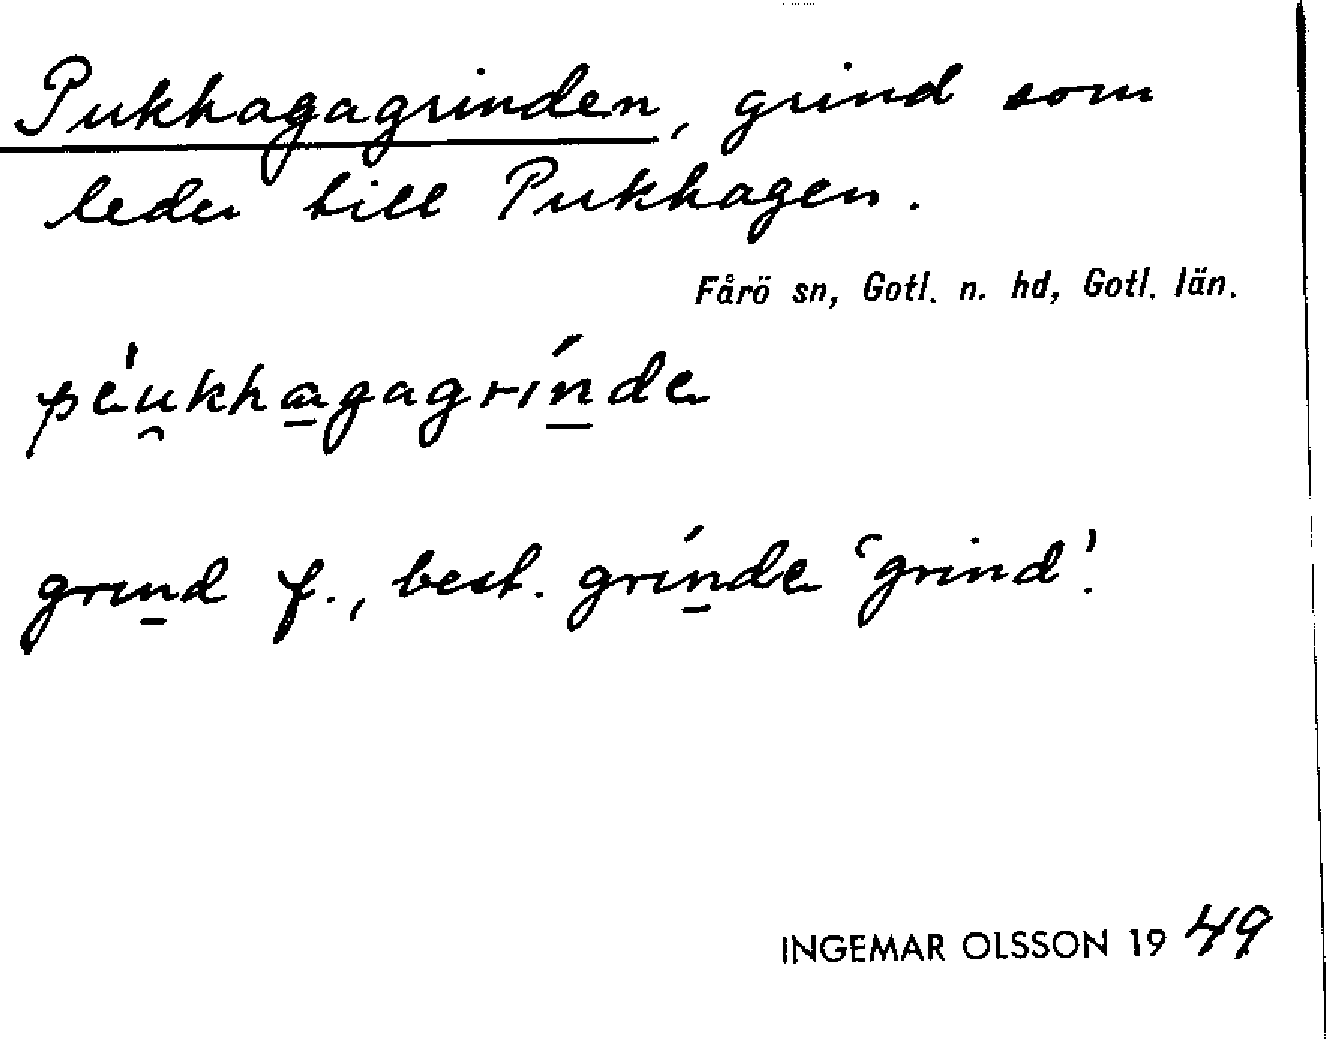 Pukhagagrinden, grind som
leder till Pukhagen.
Fårö sn, Gotl. n. hd, Gotl. län.
pèu̯kha̲gagrín̲de
grin̲d f., best. grín̲de 'grind'.
INGEMAR OLSSON 1949